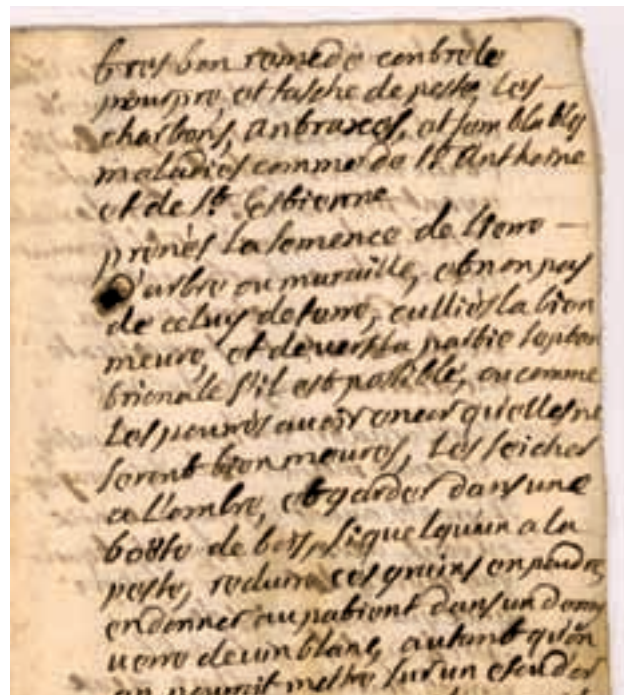 tres bon remede contre le
pourpre, et tasche de peste, Les
charbons, antraxes, et semblables
maladies comme de St Anthoine
et de St. Estienne
prenés La semence de Lierre
D'arbre ou muraille, et non pas
de celuy de terre, cullies la bien
meure, et devers la partie septen
trionale s'il est possible, ou comme
Les pourrés avoir quelles ne
seront bien meures, Les seicher
a L'ombre, et garder dans une
boëte de bois, si quelquun a la
peste, reduire ces grains en poudre
en donner au patient dans un demy
verre de vin blanc, autant qu'on
en pourroit mettre sur un